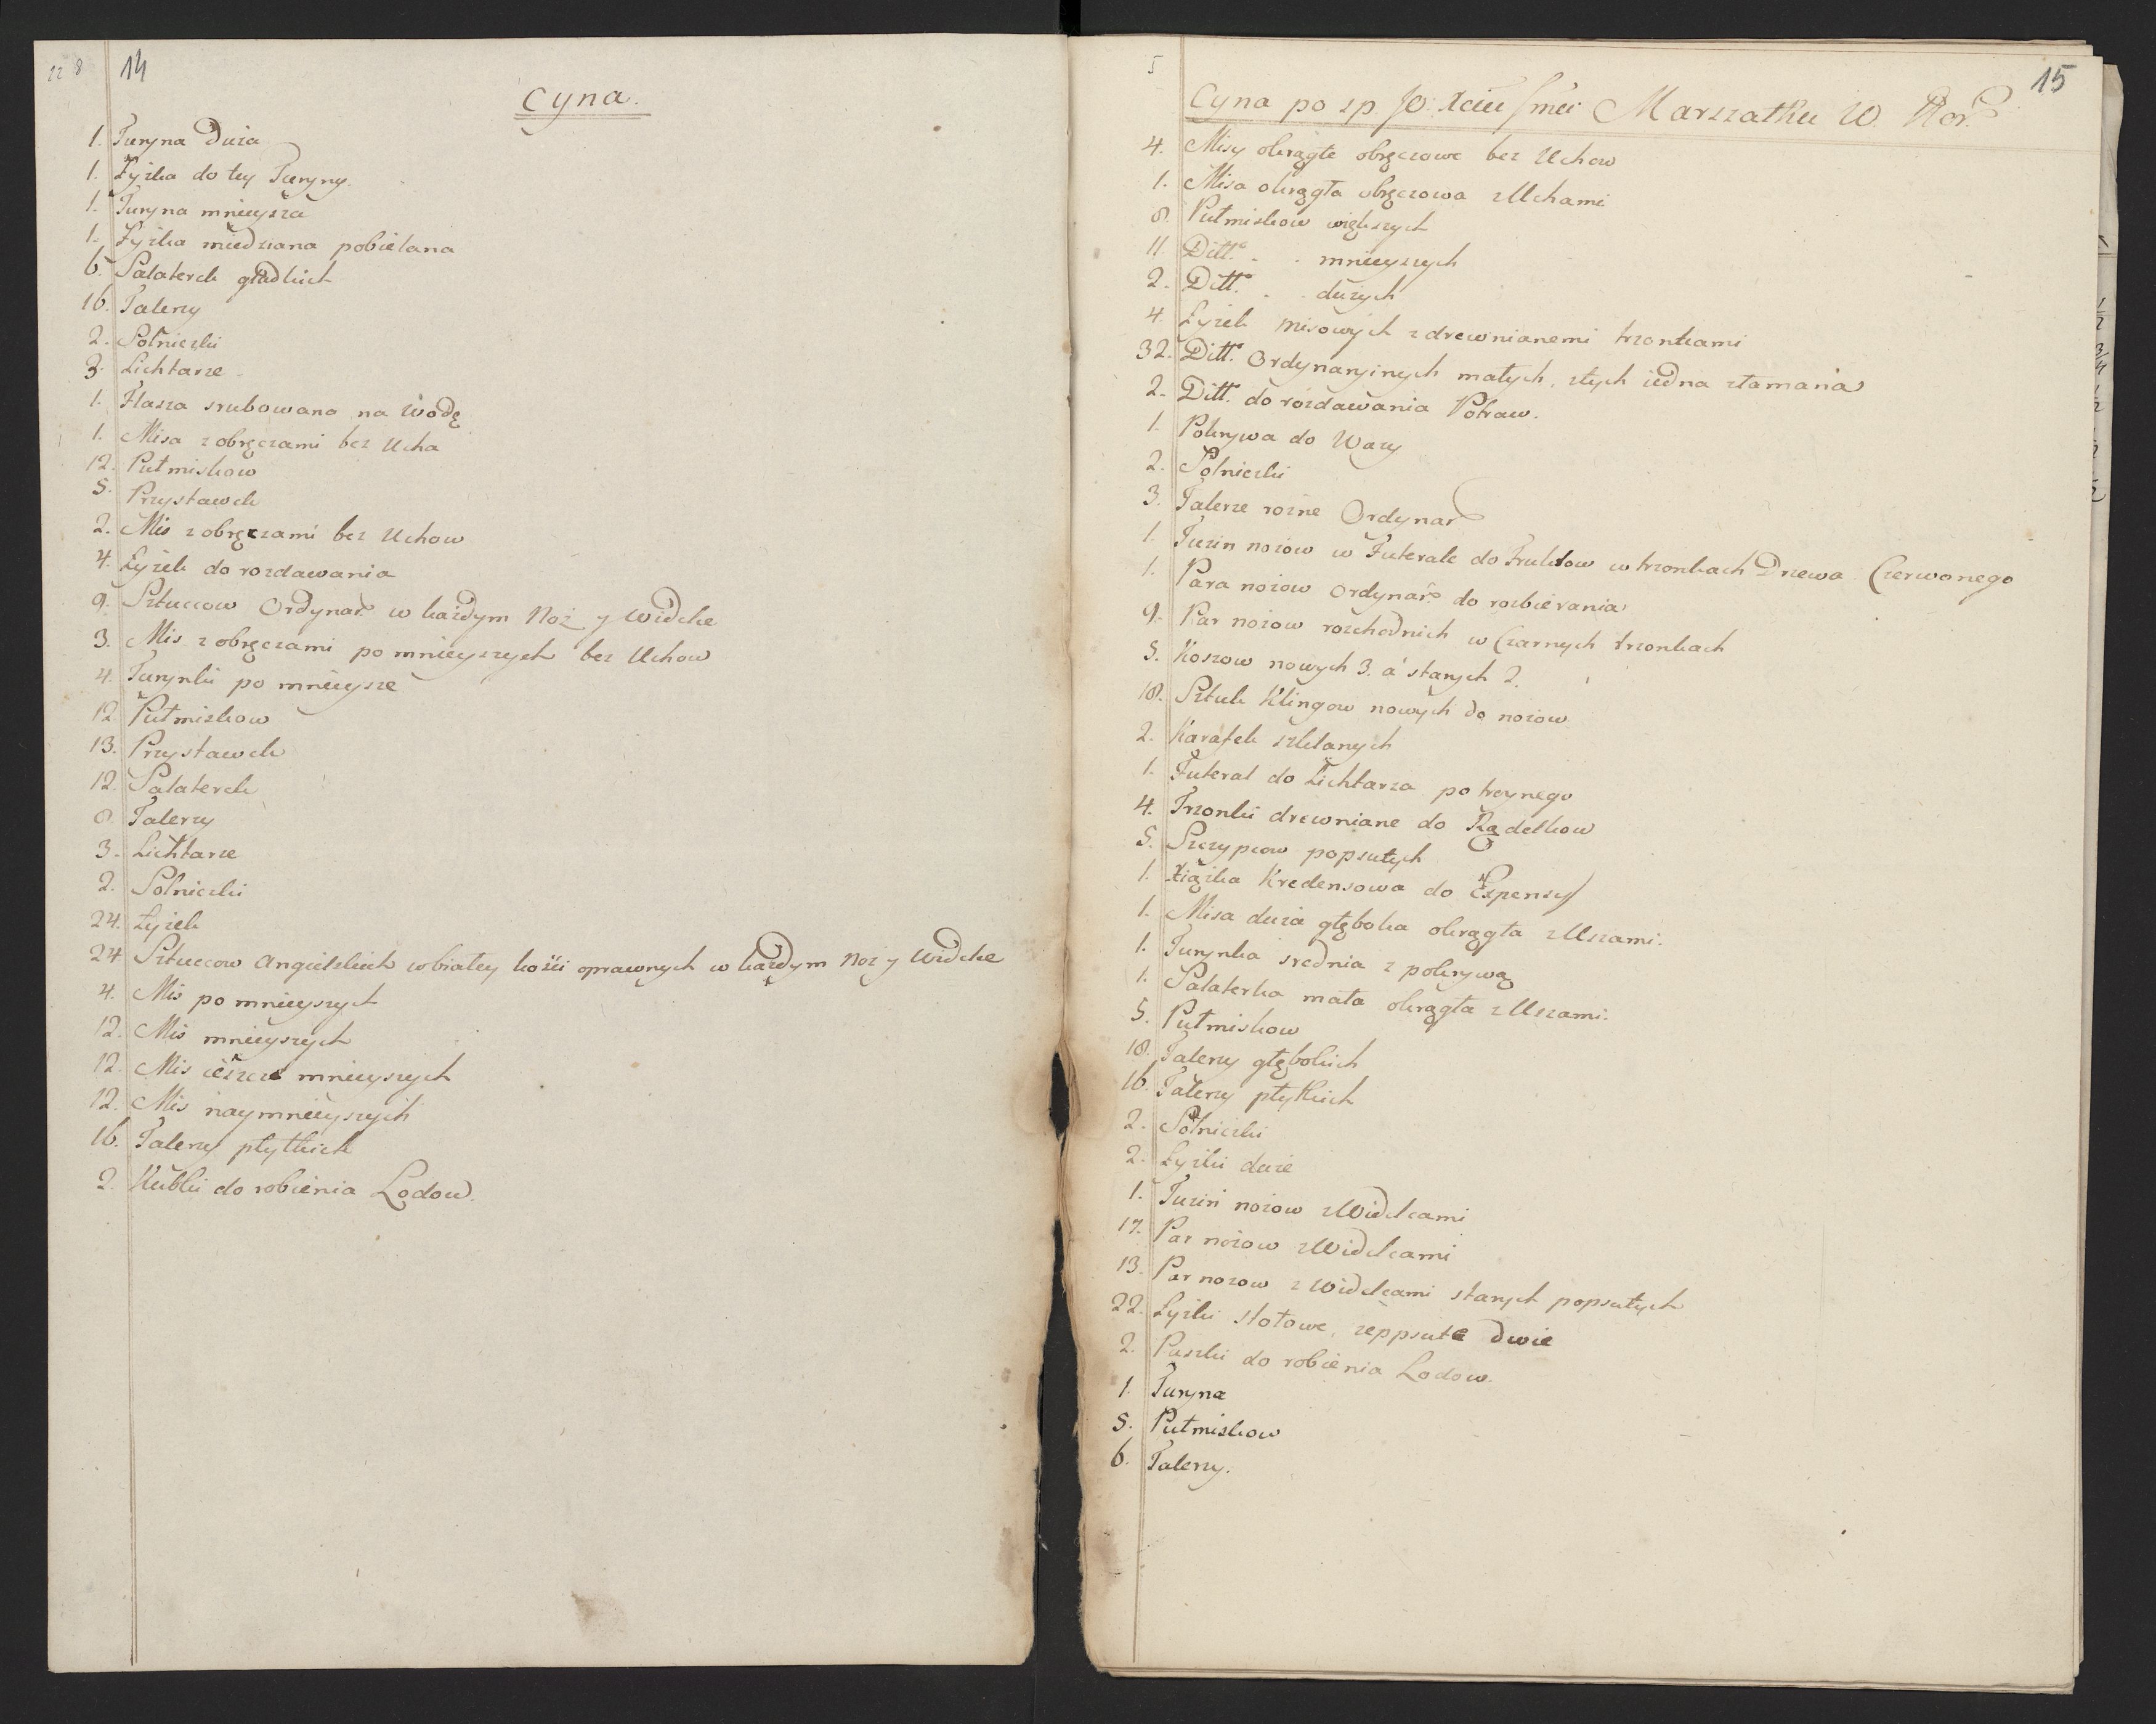 14
Cyna.
1. Turyna Duża
1. Łyżka do tey Turyny.
1. Turyna mnieysza
1. Łyżka miedziana pobielana
6. Salaterek gładkich
16. Talerzy
2. Solniczki
3. Lichtarze
1. Flasza srubowana na Wodę
1. Misa z obręczami bez Ucha
12. Pułmiskow
5. Przystawek
2. Mis z obręczami bez Uchow
4. Łyżek do rozdawania
9. Sztuccow Ordynar: w każdym Noż y Widelce
3. Mis z obręczami po mnieyszych bez Uchow
4. Turynki po mnieysze
12 Pułmiskow
13. Przystawek
12. Salaterek
8. Talerzy
3. Lichtarze
2. Solniczki
24. Łyżek
24 Sztuccow Angielskich w białey kości oprawnych w każdym Noż y Widelce
4. Mis po mnieyszych
12. Mis mnieyszych
12. Mis ieszcze mnieyszych
12. Mis naymnieyszych
16. Talerzy płytkich
2. Kubki do robienia Lodow.
15
Cyna po sp JO: Xciu Jmci Marszałku W. Kor:
4. Misy okrągłe obręczowe bez Uchow
1. Misa okrągła obręczowa z Uchami
8. Pułmiskow większych
11. Ditto . . mnieyszych
2. Ditto . . dużych
4. Łyżek misowych z drewnianemi trzonkami
32. Ditto Ordynaryinych małych, z tych iedna złamana
2. Ditto do rozdawania Potraw.
1. Pokrywa do Wazy
2. Solniczki
3. Talerze rożne Ordynar:
1. Tuzin nożow w Futerale do Fruktow w trzonkach Drzewa Czerwonego
1. Para nożow Ordynar: do rozbierania
9. Par nożow rozchodnich w Czarnych trzonkach
5. Koszow nowych 3. á starych 2.
18. Sztuk Klingow nowych do nożow
2. Karafek szklanych
1. Futerał do Lichtarza potroynego
4. Trzonki drewniane do Rądelkow
5. Szczypcow popsutych
1. Xiążka Kredensowa do Expensy
1. Misa duża głęboka okrągła z Uszami.
1. Turynka srednia z pokrywą
1. Salaterka mała okrągła z Uszami.
5. Pułmiskow
18. Talerzy głębokich
16. Talerzy płytkich
2. Solniczki
2. Łyżki duże
1. Tuzin nożow z Widelcami
17. Par nożow z Widelcami
13. Par nożow z Widelcami starych popsutych
22. Łyżki stołowe, zeppsute dwie
2. Puszki do robienia Lodow.
1. Turyna
5. Pułmiskow
6. Talerzy.